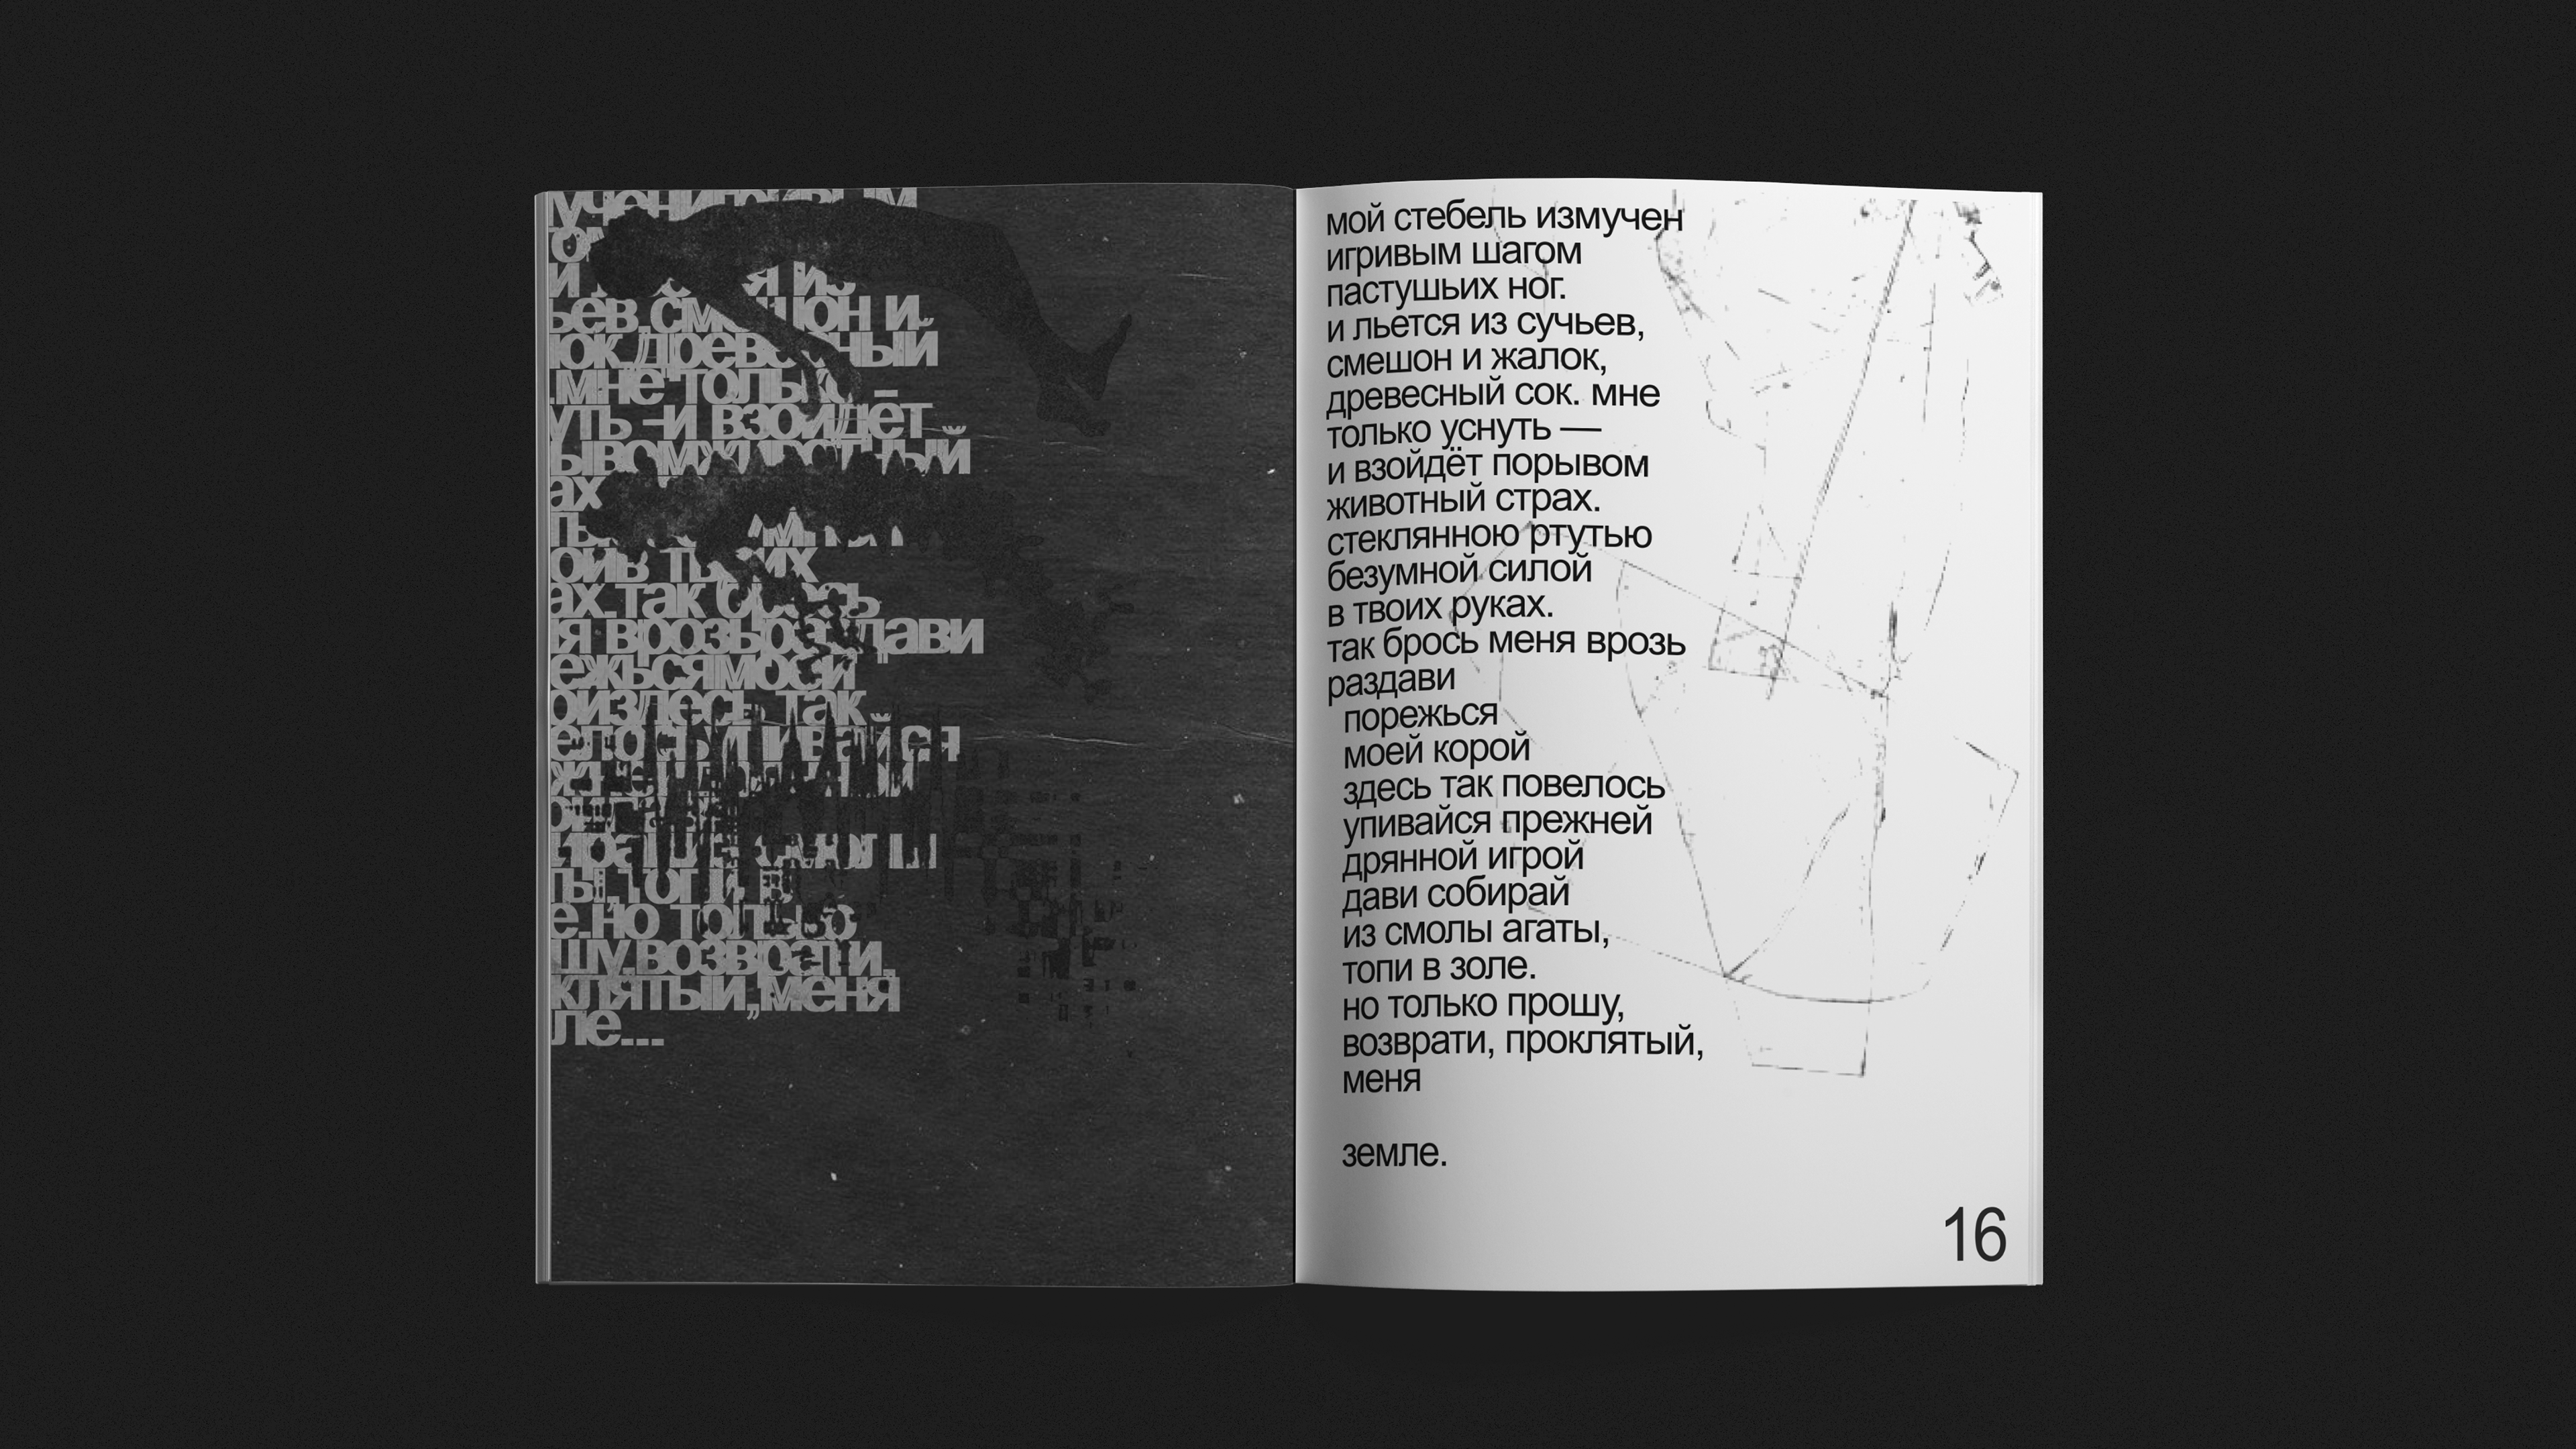 ьев, смешон и
древесный
мне только –
уть – и взойдёт
ах
ах. так брось
я врозь раздави
здесь так
но только
шу, возврати,
клятый, меня
ле...
мой стебель измучен
игривым шагом
пастушьих ног.
и льется из сучьев,
смешон и жалок,
древесный сок. мне
только уснуть —
и взойдёт порывом
животный страх.
стеклянною ртутью
безумной силой
в твоих руках.
так брось меня врозь
раздави
порежься
моей корой
здесь так повелось
упивайся прежней
дрянной игрой
дави собирай
из смолы агаты,
топи в золе.
но только прошу,
возврати, проклятый,
меня
земле.
16